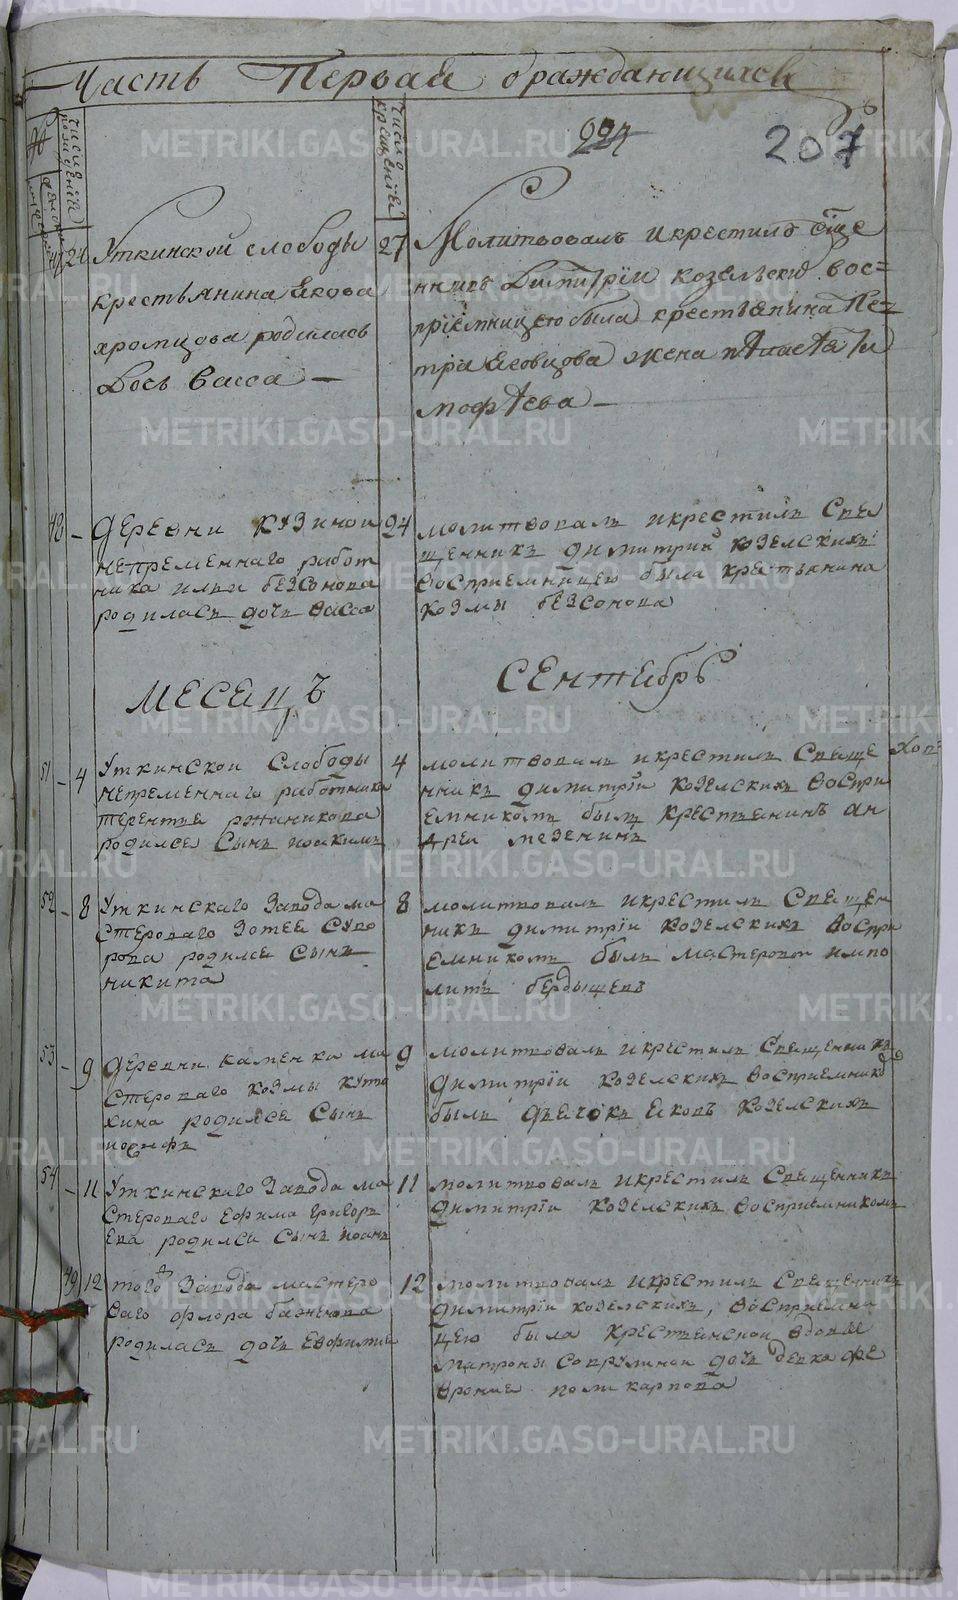 Часть Первая ораждающихся
224
207
число рождения
число крещения
47 24 Уткинской слободы
крестьянина Якова
хромцова родилась
Дочь Васса —
27 Молитвовалъ и крестилъ Свяще
нникъ Димитрїи козельски вос=
прїемницею была крестьянина Пе=
тра Яговцова жена пелагея Ти
мофеева —
48 - деревни кузинои
непременнаго работ
ника ильи безсонова
родиласъ дочь васса
24 молитвовалъ икрестилъ Свя
щенникъ димитрии козелскихъ
восприемницею была крестьянина
козмы безсонова
месецъ Сентебрь
51 - 4 Уткинскои Слободы
непременнаго работника
терентья ржаникова
родилсе Сынъ иоакимъ
4 молитвовалъ икрестилъ Свяще
нникъ димитрїи козелскихъ воспри
емникомъ былъ крестьенинъ ан
дреи мезенинъ
52 - 8 Уткинскаго Завода ма
стероваго Зотея Суво
рова родилсе Сынъ
никита
8 молитвовалъ икрестилъ Свещен
никъ димитрїи козелскихъ воспри
емникомъ былъ мастеровои иппо
литъ бердышевъ
53 - 9 деревни каменка ма
стероваго козмы кута
хина родилсе Сынъ
иосифъ
9 молитвовалъ икрестилъ Свещенникъ
димитрїи козелскихъ восприемнико
былъ дьечокъ яковъ козелскихъ
54 - 11 Уткинскаго Завода ма
стероваго ефима григорь
ева родилсе Сынъ иоанъ
11 молитвовалъ икрестилъ Свещенникъ
димитрїи козелскихъ восприемникомъ
49 12 того Завода мастеро
ваго флора баженова
родиласъ дочь евфимие
12 молитвовалъ икрестилъ Свещенникъ
димитрїи козелскихъ, восприемни
цею была крестьянскои вдовы
матроны дочь девка фе
вроние поликарпова
METRIKI.GASO-URAL.RU